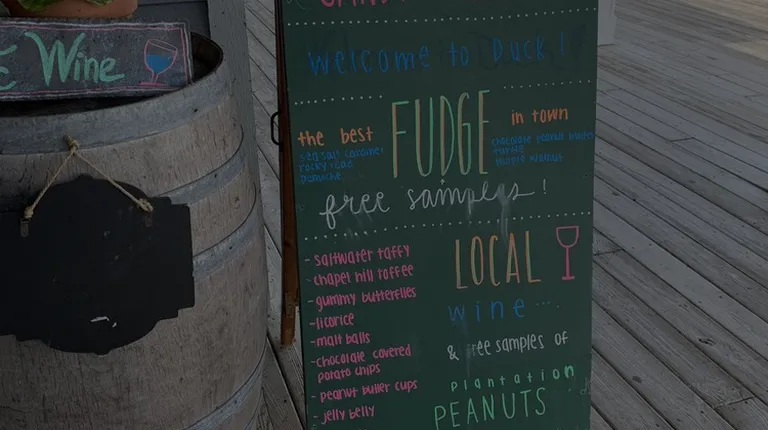 & Wine
Welcome to Duck!
the best
FUDGE
in town
sea salt caramel
rocky road
chocolate peanut butter
turtle
maple walnut
free samples!
- saltwater taffy
- chapel hill toffee
- gummy butterflies
- licorice
- malt balls
- chocolate covered
potato chips
- peanut butter cups
- jelly belly
LOCAL
wine ...
& free samples of
plantation
PEANUTS